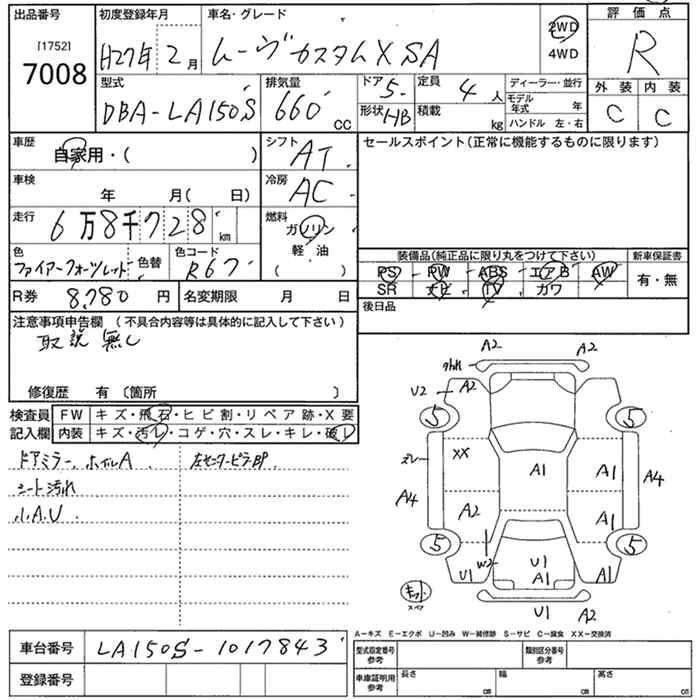 出品番号 初度登録年月 車名・グレード 評価点
[1752]
7008
H27年 2月 ムーヴカスタムX SA 2WD 4WD R
型式 排気量 ドア 5 定員 4人 ディーラー・並行 外装 内装
DBA-LA150S 660 CC 形状 HB 積載 kg モデル年式 年 C C
ハンドル 左・右
車歴 自家用・( ) シフト AT セールスポイント(正常に機能するものに限ります)
車検 年 月( 日) 冷房 AC
走行 6万8千728km 燃料 ガソリン
軽油
( )
色 ファイアークォーツレッド 色替 色コード R67
装備品(純正品に限り丸をつけて下さい) 新車保証書
PS PW ABS エアB AW 有・無
SR ナビ TV カワ
R券 8,780円 名変期限 月 日 後日品
注意事項申告欄 (不具合内容等は具体的に記入して下さい)
取説無し
修復歴 有〔箇所 〕
検査員 FW キズ・飛石・ヒビ割・リペア跡・X要
記入欄 内装 キズ・汚レ・コゲ・穴・スレ・キレ・破レ
ドアミラー、ホイルA 左センターピラーBP
シート汚れ
小A.U
A2 A2
ワレ
U2 A2 A1
5 5
スレ XX A1 A1 A4
A4 A2 A1
5 5
W2 U1
U1 A1 A1
キット
スペア
U1 A2
A-キズ E-エクボ U-凹み W-補修跡 S-サビ C-腐食 XX-交換済
車台番号 LA150S-1017843
登録番号
型式指定番号 参考 類別区分番号 参考
車庫証明用 参考 長さ cm 幅 cm 高さ cm